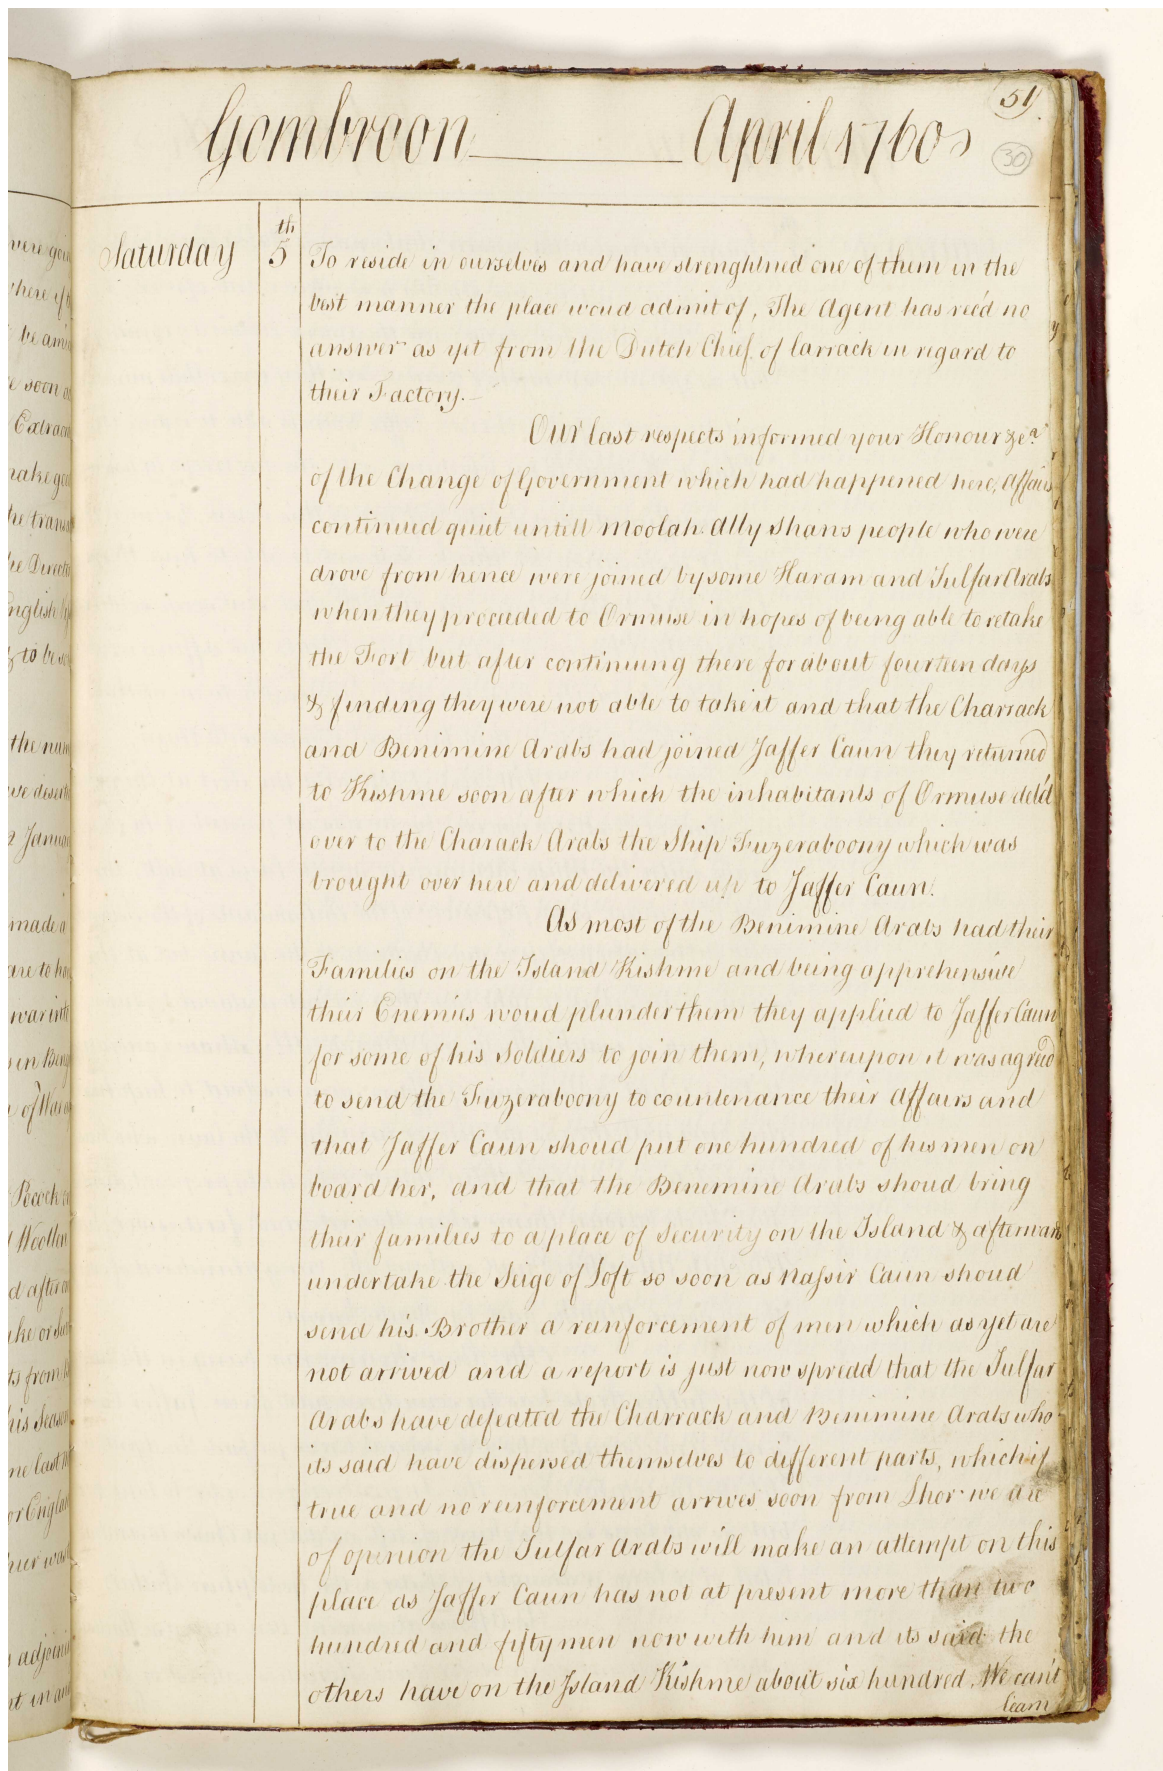 51
30
Gombroon April 1760
Saturday 5th To reside in ourselves and have strenghtned one of them in the
best manner the place woud admit of, The Agent has rec'd no
answer as yet from the Dutch Chief of Carrack in regard to
their Factory.
Our last respects informed your Honour &ca
of the Change of Government which had happened here, Affairs
continued quiet untill Moolah Ally Shaws people who were
drove from hence were joined by some Haram and Julfar Arabs
when they proceeded to Ormuse in hopes of being able to retake
the Fort but after continuing there for about fourteen days
& finding they were not able to take it and that the Charrack
and Benimine Arabs had joined Jaffer Caun they returned
to Kishme soon after which the inhabitants of Ormuse deld
over to the Charack Arabs the Ship Fuzeraboony which was
brought over here and delivered up to Jaffer Caun.
As most of the Benimine Arabs had their
Families on the Island Kishme and being apprehensive
their Enemies woud plunder them they applied to Jaffer Caun
for some of his Soldiers to join them, whereupon it was agreed
to send the Fuzeraboony to countenance their Affairs and
that Jaffer Caun shoud put one hundred of his men on
board her, and that the Benemine Arabs shoud bring
their families to a place of Security on the Island & afterwards
undertake the Seige of Loft so soon as Nassir Caun shoud
send his Brother a reinforcement of men which as yet are
not arrived and a report is just now spread that the Julfar
Arabs have defeated the Charrack and Benimine Arabs who
its said have dispersed themselves to different parts, which if
true and no reinforcement arrives soon from Lhor we are
of opinion the Julfar Arabs will make an attempt on this
place as Jaffer Caun has not at present more than two
hundred and fifty men now with him and its said the
others have on the Island Kishme about six hundred. We can't
learn